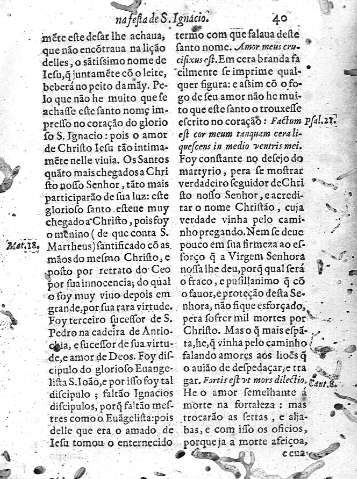 na festa de S. Ignacio. 40
mẽte este desar lhe achaua,
que não encõtraua na lição
delles, o sãtissimo nome de
Iesu, q̃ juntamẽte cõ o leite,
bebera no peito da mãy. Pe
lo que não he muito que se
achasse este santo nome im-
presso no coração do glorio
so S. Ignacio: pois o amor
de Christo Iesu tão intima-
mẽte nelle viuia. Os Santos
quãto mais chegados a Chri
sto nosso Senhor, tãto mais
participarão de sua luz: este
glorioso santo esteue muy
chegado a Christo, pois foy
o menino (de que conta S.
Mat. 18.
Martheus) santificado cõ as
mãos do mesmo Christo, e
posto por retrato do Ceo
por sua innocencia; do qual
o soy muy viuo depois em
grande, por sua rara virtude.
Foy terceiro sucessor de S.
Pedro na cadeira de Antio-
chia, e sucessor de sua virtu-
de, e amor de Deos. Foy dis-
cipulo do glorioso Euange-
lista S. Ioão, e por isso foy tal
discipulo; faltão Ignacios
discipulos, porq̃ faltão mes-
tres como o Euãgelista: pois
delle que era o amado de
Iesu tomou o enternecido
termo com que falaua deste
santo nome. Amor meus cru-
cifixus est. Em cera branda fa
cilmente se imprime qual-
quer figura: e assim cõ o fo-
go de seu amor não he mui-
to que este santo o trouxesse
escrito no coração: Factum
Psal. 21.
est cor meum tanquam cera li-
quescens in medio ventris mei.
Foy constante no desejo do
martyrio, pera se mostrar
verdadeiro seguidor de Chri
sto nosso Senhor, e acredi-
tar o nome Christão, cuja
verdade vinha pelo cami-
nho pregando. Nem se deue
pouco em sua firmeza ao es-
forço q̃ a Virgem Senhora
nossa lhe deu, porq̃ qual será
o fraco, e pusillanimo q̃ cõ
o fauor, e proteção desta Se-
nhora, não fique esforçado,
pera sofrer mil mortes por
Christo. Mas o q̃ mais espã-
ta, he, q̃ vinha pelo caminho
falando amores aos liões q̃
o auião de despedaçar, e tra-
gar. Fortis est vt mors dilectio.
Cant. 8.
He o amor semelhante á
morte na fortaleza: mas
trocarão as setas, e alja-
bas, e com isso os oficios,
porque ja a morte afeiçoa,
e cua-